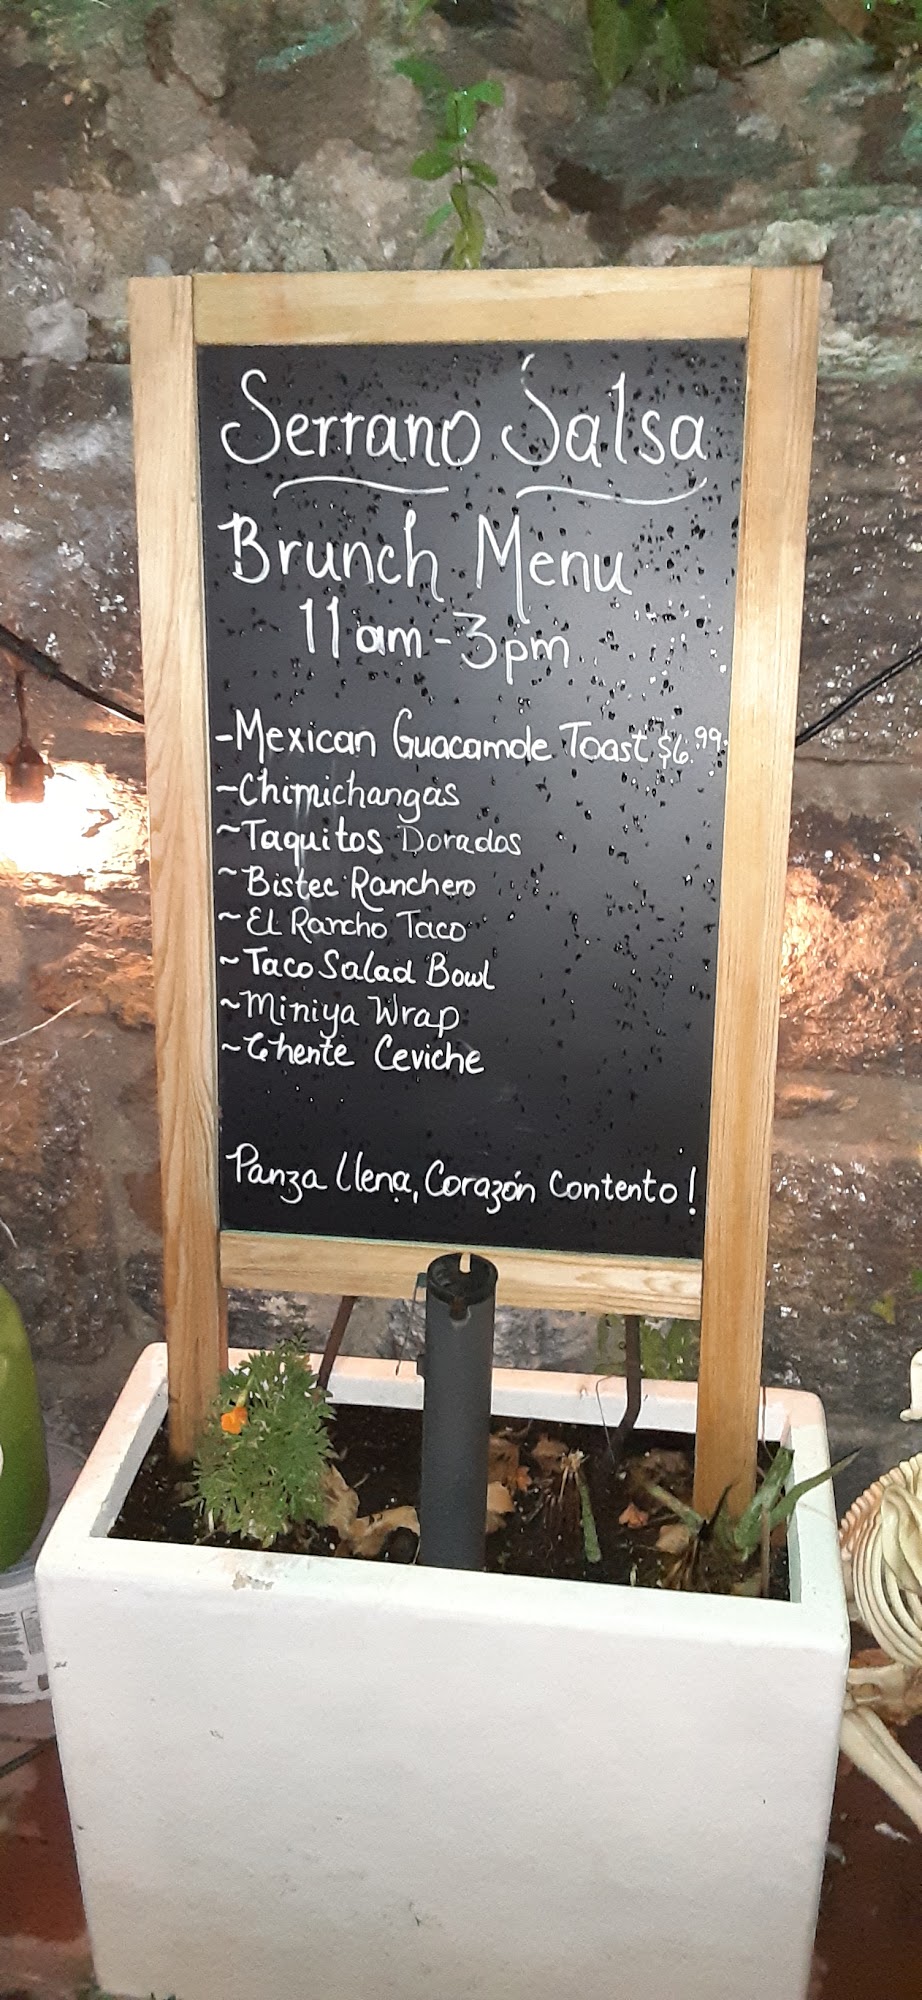 Serrano Salsa
Brunch Menu
11am-3pm
-Mexican Guacamole Toast $6.99
~Chimichangas
~Taquitos Dorados
~Bistec Ranchero
~El Rancho Taco
~Taco Salad Bowl
~Miniya Wrap
~Chente Ceviche
Panza Llena, Corazón Contento!